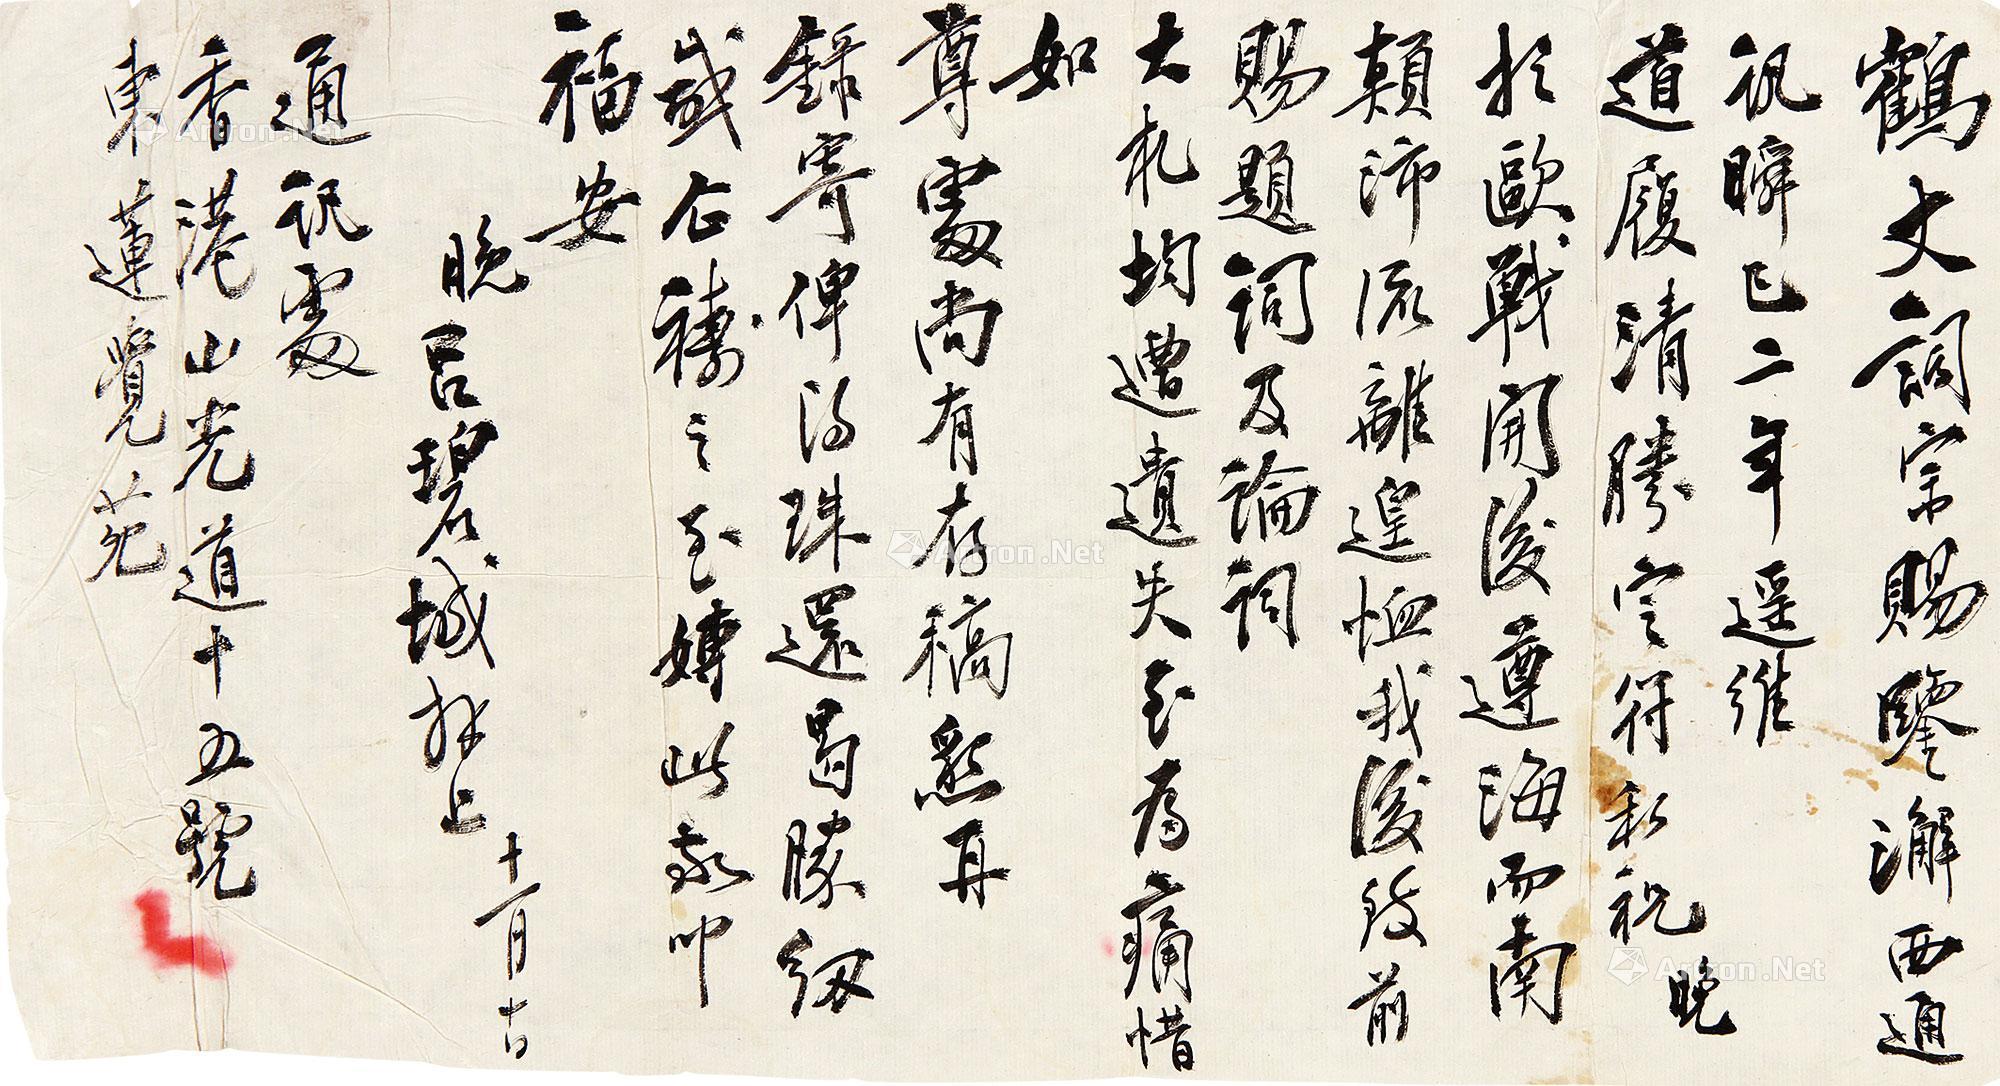 鶴丈詞宗賜鑒澥西通
訊瞬已二年遥維
道履清勝定符私祝晚
於歐戰開後遵海而南
顛沛流離遑恤我後致前
賜題詞及論詞
大札均遭遺失至為痛惜
如
尊處尚有存稿懇再
錄寄俾得珠還曷勝紉
感企禱之至專此敬叩
福安
晚呂碧城拜上
十一月十六日
通訊處
香港山光道十五號
東蓮覺苑
Artron.Net
Artron.Net
Artron.Net